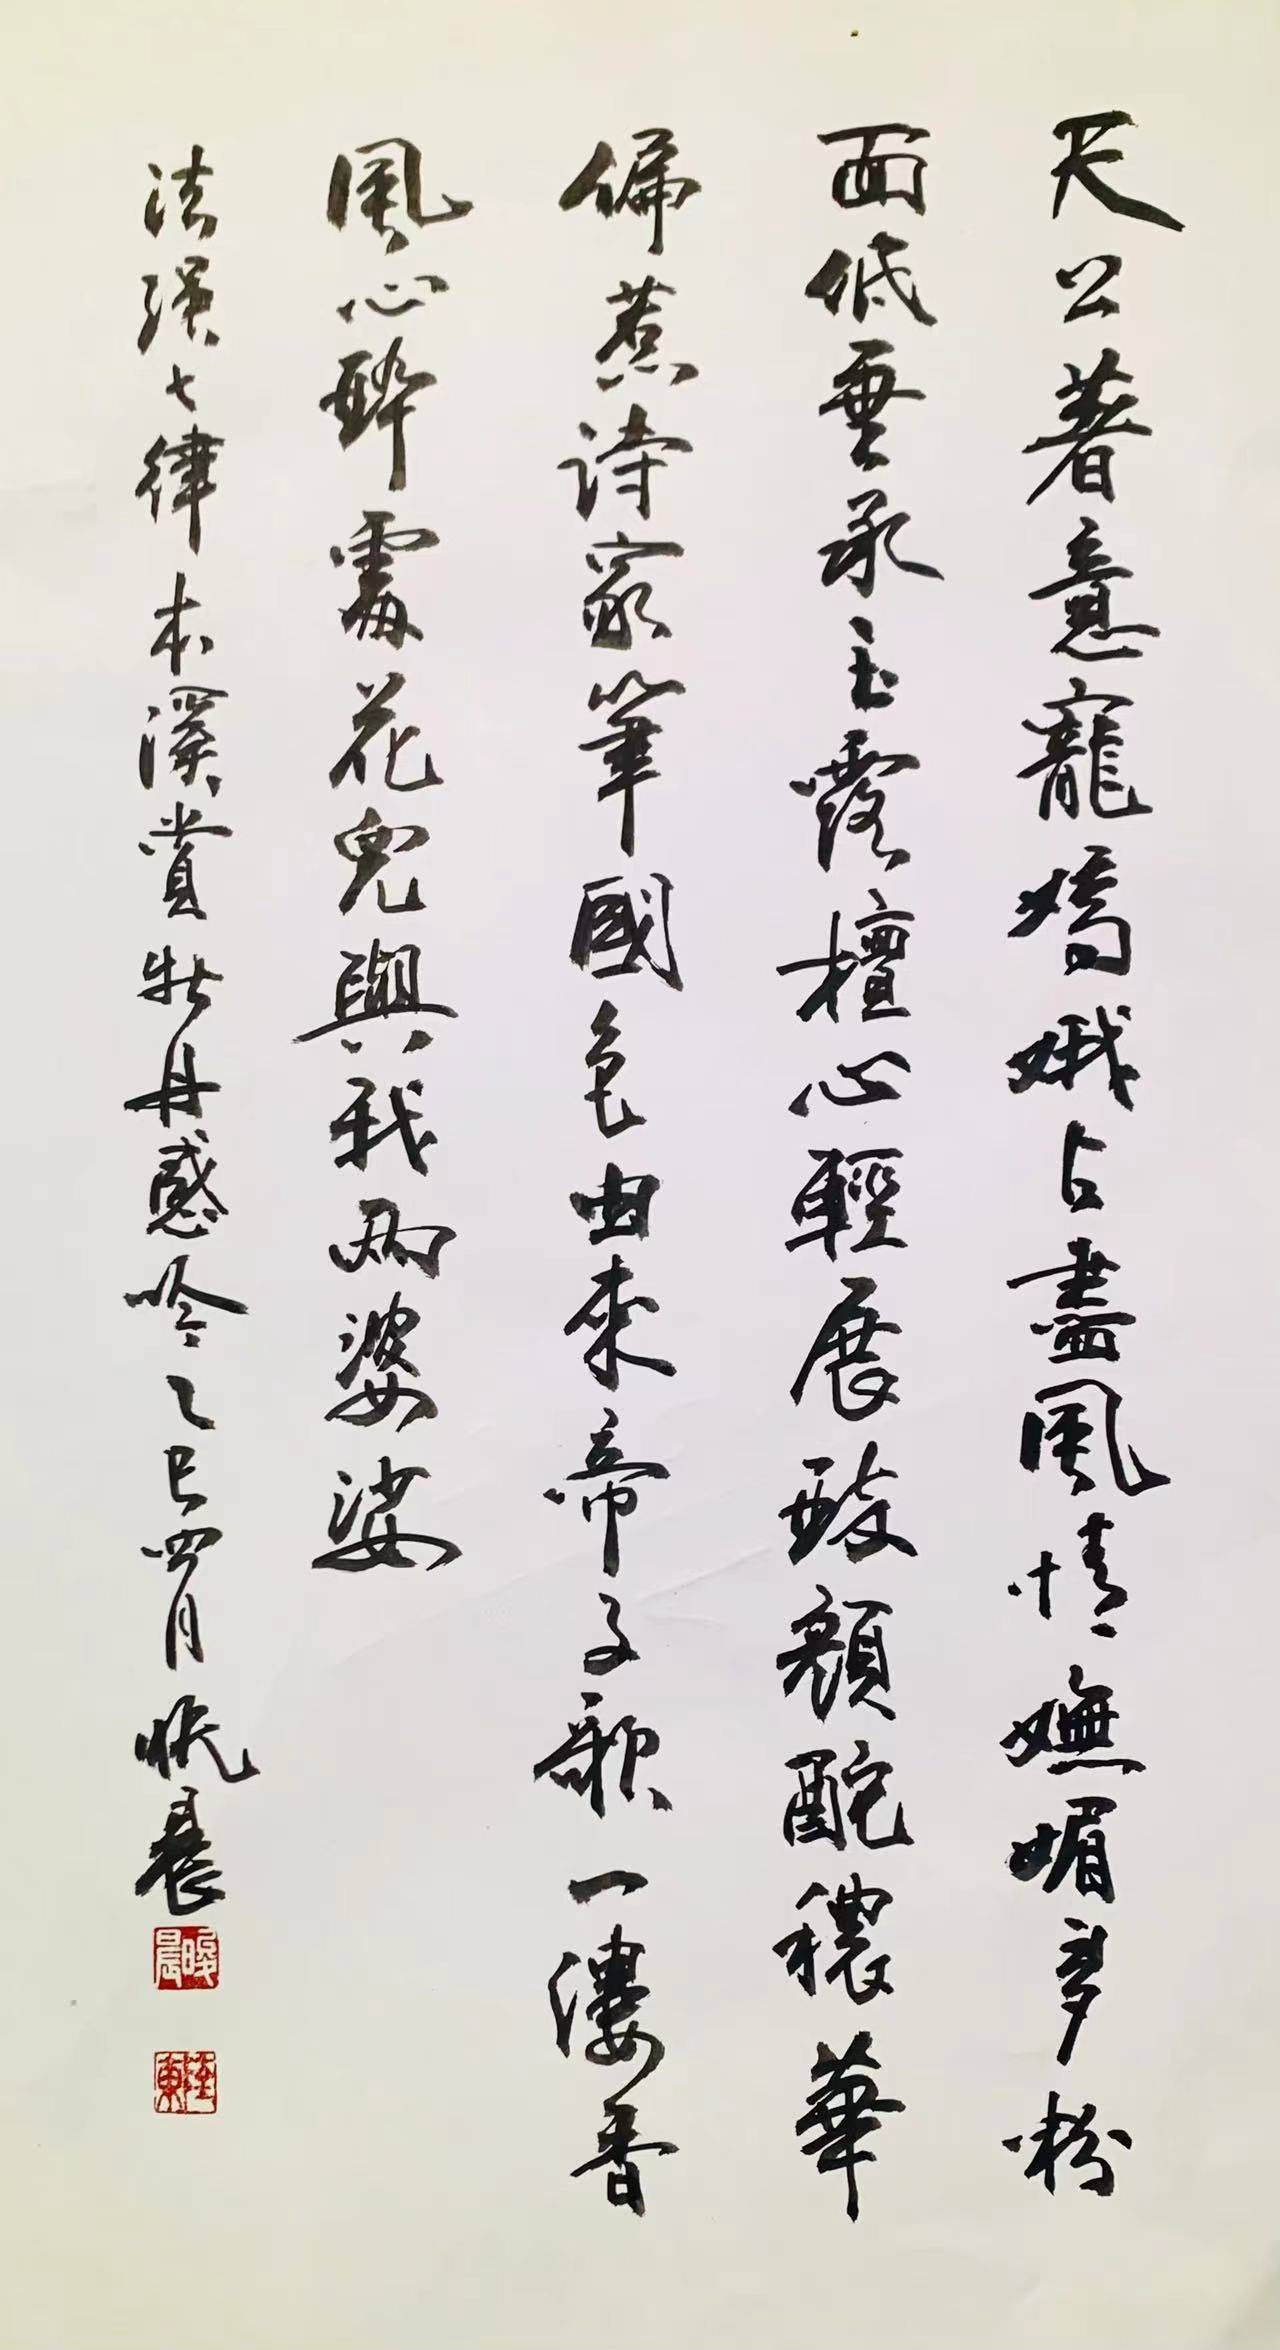 天公著意寵嬌娥占盡風情嫵媚多粉
面低垂承玉露檀心輕展酡顏酡穠華
偏惹詩家筆國色由來帝子歌一縷香
風心醉處花兒與我兩婆娑
法強七律本溪賞牡丹感吟乙巳四月晨